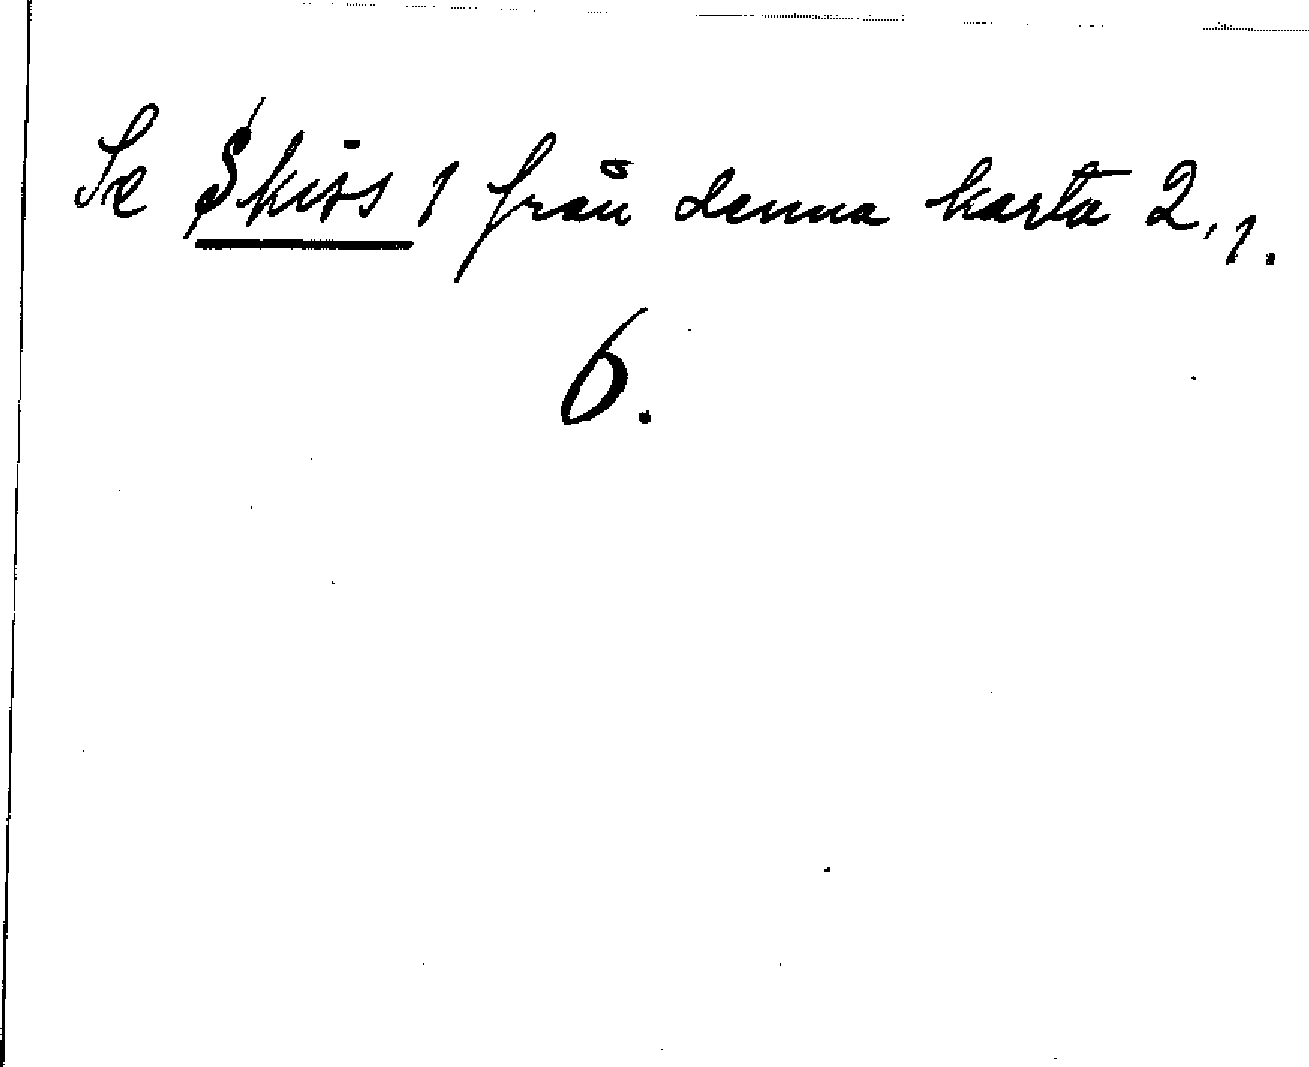 Se Skiss 1 från denna karta 2,1.
6.